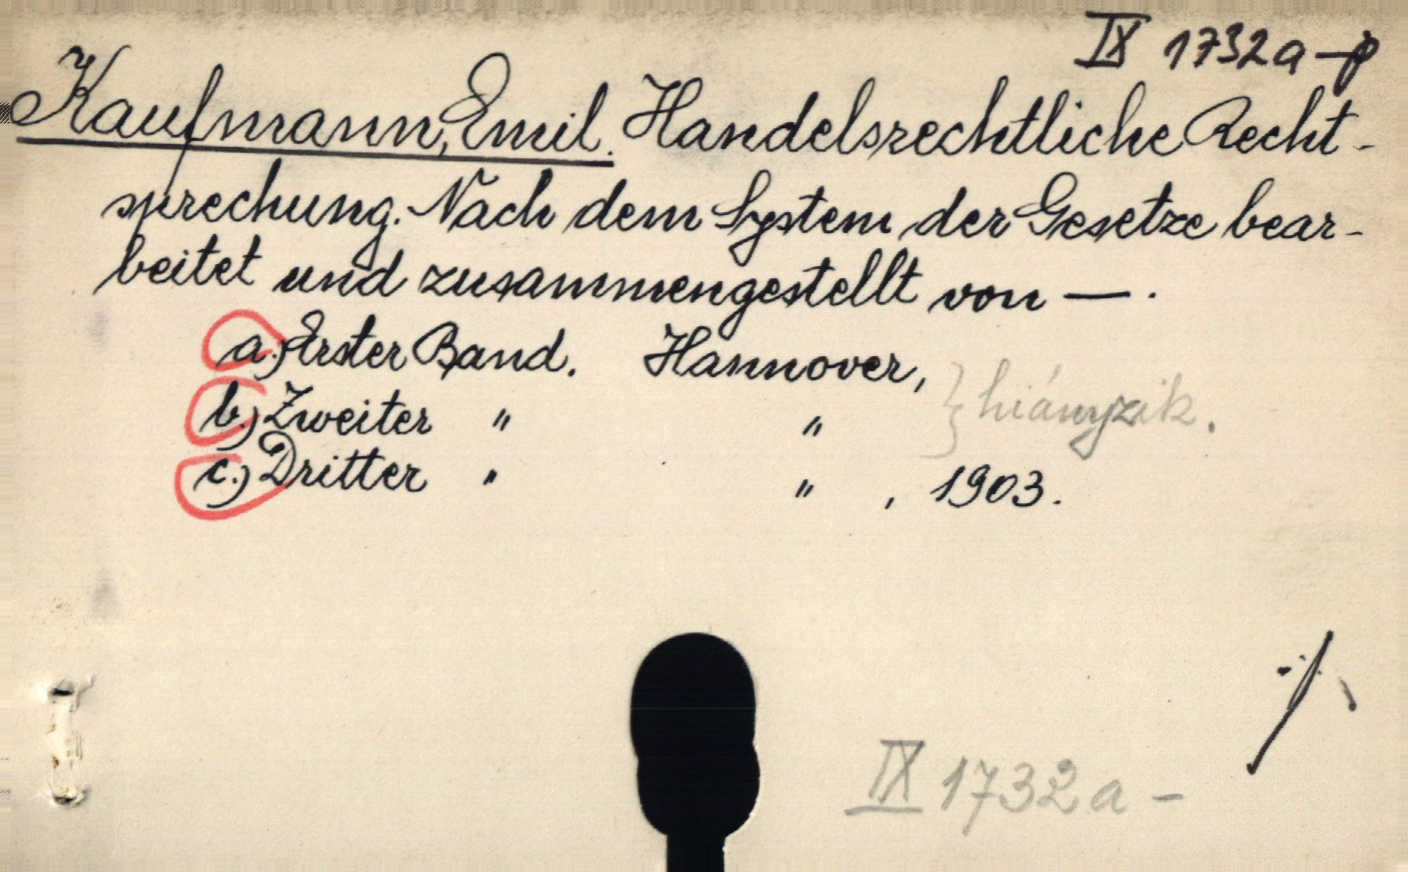 IX 1732a-p
Kaufmann, Emil. Handelsrechtliche Recht-
sprechung. Nach dem System der Gesetze bear-
beitet und zusammengestellt von —.
a.) Erster Band. Hannover,
b.) Zweiter " " } hiányzik.
c.) Dritter " " , 1903.
IX 1732a-